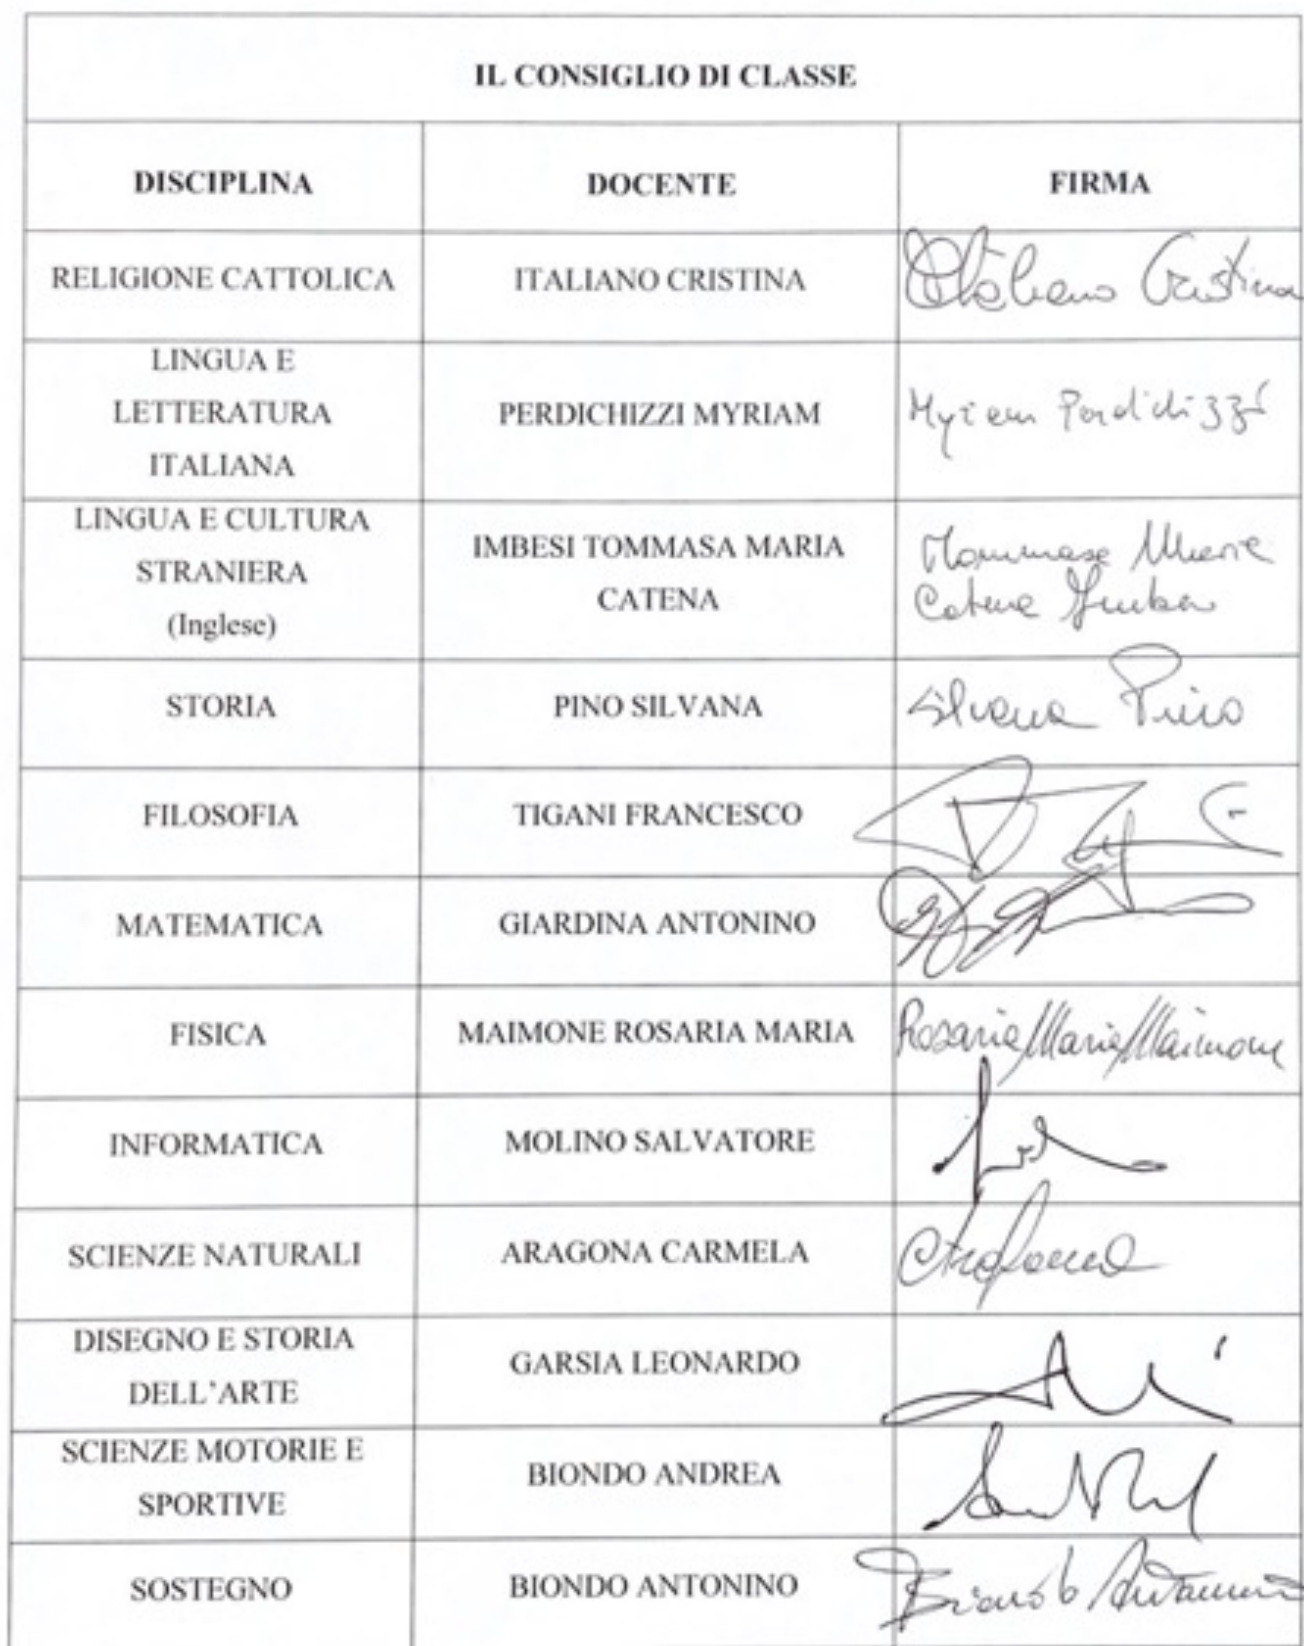 IL CONSIGLIO DI CLASSE
DISCIPLINA DOCENTE FIRMA
RELIGIONE CATTOLICA ITALIANO CRISTINA Italiano Cristina
LINGUA E
LETTERATURA
ITALIANA
PERDICHIZZI MYRIAM Myriam Perdichizzi
LINGUA E CULTURA
STRANIERA
(Inglese)
IMBESI TOMMASA MARIA
CATENA
Tommasa Maria
Catena Imbesi
STORIA PINO SILVANA Silvana Pino
FILOSOFIA TIGANI FRANCESCO
MATEMATICA GIARDINA ANTONINO
FISICA MAIMONE ROSARIA MARIA Rosaria Maria Maimone
INFORMATICA MOLINO SALVATORE
SCIENZE NATURALI ARAGONA CARMELA
DISEGNO E STORIA
DELL'ARTE
GARSIA LEONARDO
SCIENZE MOTORIE E
SPORTIVE
BIONDO ANDREA
SOSTEGNO BIONDO ANTONINO Biondo Antonino